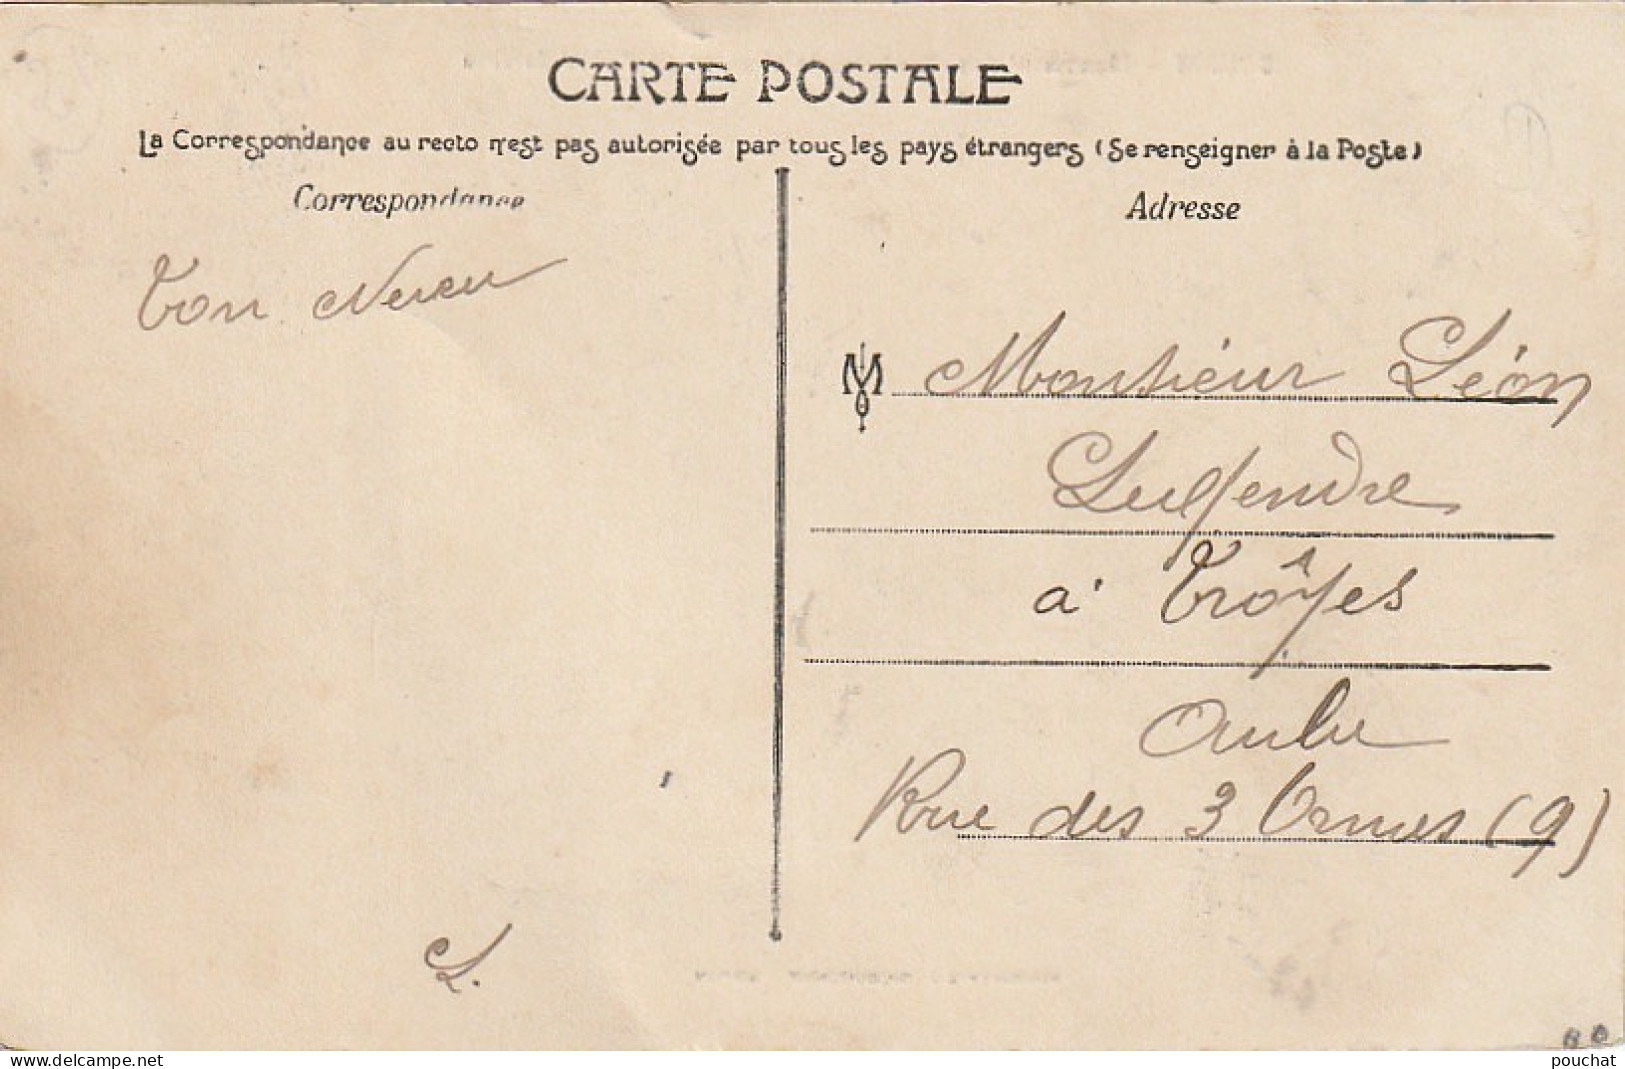 CARTE POSTALE
La Correspondance au recto n'est pas autorisée par tous les pays étrangers (Se renseigner à la Poste)
Correspondance
Adresse
Ton Neveu
L.
M Monsieur Léon
à Trôyes
Aube
Rue des 3 Ormes (9)
www.delcampe.net
pouchat